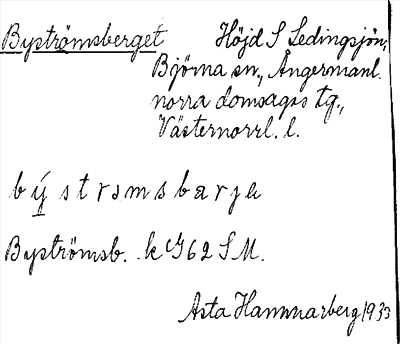 Byströmsberget Höjd S Ledingsjön,
Björna sn., Ångermanl.
norra domsagas tg.,
Västernorrl. l.
bý strɔmsbarjɛ
Byströmsb. k G62 SM.
Asta Hammarberg 1933